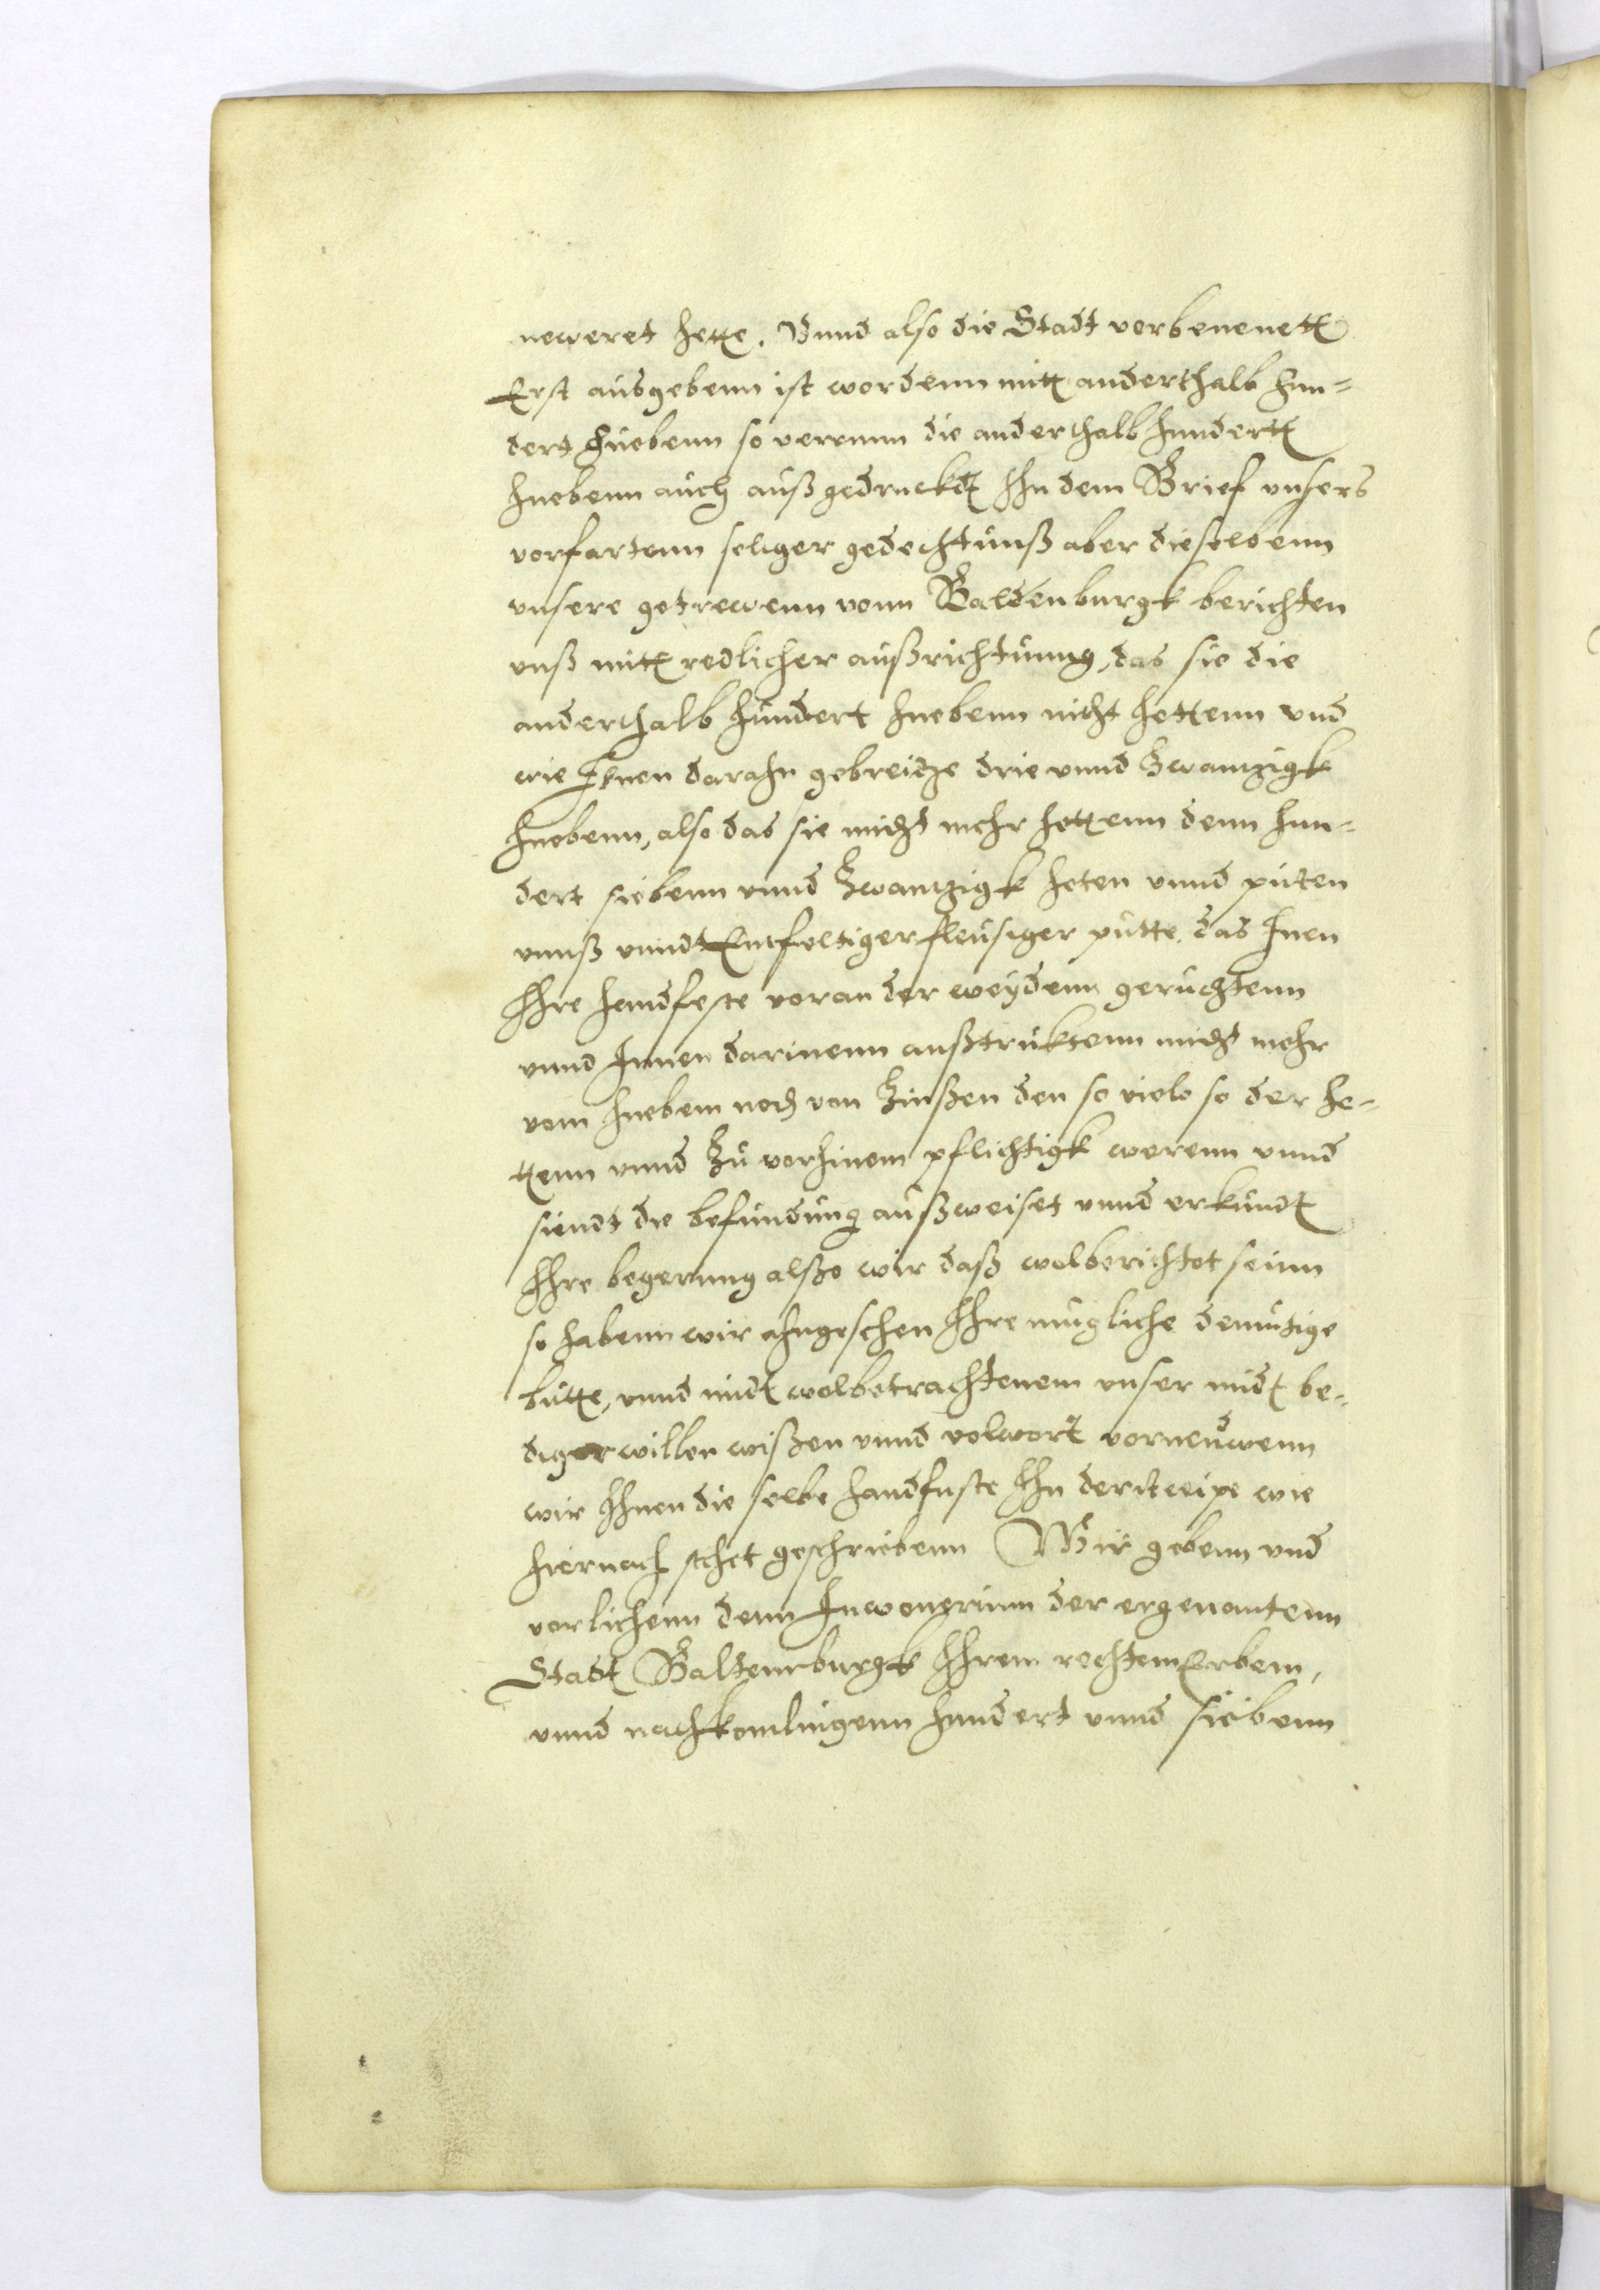 neweret hette. Vnnd also die Stadt vorbenenett
Erst ausgebenn ist wordenn mitt anderthalb hun-
dert huebenn so werenn die anderthalb hundertt
huebenn auch außgedruckdt Ihn dem Brief vnsers
vorfartenn seliger gedechtnuß aber dieselbenn
vnsere getrewenn vonn Baldenburgk berichten
vnß mitt redlicher außrichtunng, das sie die
anderthalb hundert huebenn nicht hettenn vnd
wie Ihnen darahn gebreche drie vnnd Zwanzigk
huebenn, also das sie nicht mehr hettenn denn hun-
dert siebenn vnnd Zwanzigk heten vnnd puten
vnnß vnndt Entfeltiger fleusiger putte, das Inen
Ihre handfeste voran der weydenn geruchtenn
vnnd Innen darinenn außtruktenn nicht mehr
vom huebenn noch von Zinßen den so viele so der he-
ttenn vnnd Zu vorhinem pflichtigk werenn vnnd
siendt die befundung außweiset vnnd erkundt
Ihre begerung alßo wir daß wolberichtet seinn
so habenn wir ahngesehen Ihre mugliche demutige
butte, vnnd midt wolbetrachtenem vnser midt be-
diger willen wißen vnnd volwort vorneuwenn
wir Ihnen die selbe handfeste Ihn der weise wie
hiernach stehet geschriebenn Wir gebenn vnd
vorlichenn denn Inwonerinn der ergenantenn
Stadt Baldennburgk Ihrem rechtem Erbem,
vnnd nachkomlingenn hundert vnnd siebenn